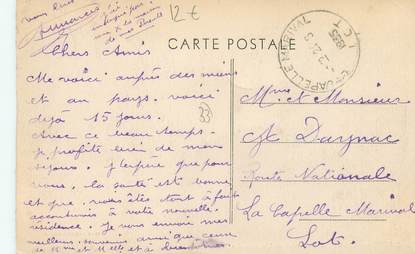 12€
CARTE POSTALE
LACAPELLE-MARIVAL
LOT
Chers Amis
Me voici auprès des miens
et au pays. voici
déja 15 jours.
Avec ce beau temps.
je profite bien de mon
séjour. J'espère que pour
vous, la santé est bonne
et que vous êtes tout à fait
accoutumés à votre nouvelle
résidence. Je vous envoi mes
meilleurs souvenirs ainsi que ceux
de Mme et Melle et à
33
Mme et Monsieur
Daynac
Route Nationale
La Capelle Marival
Lot.